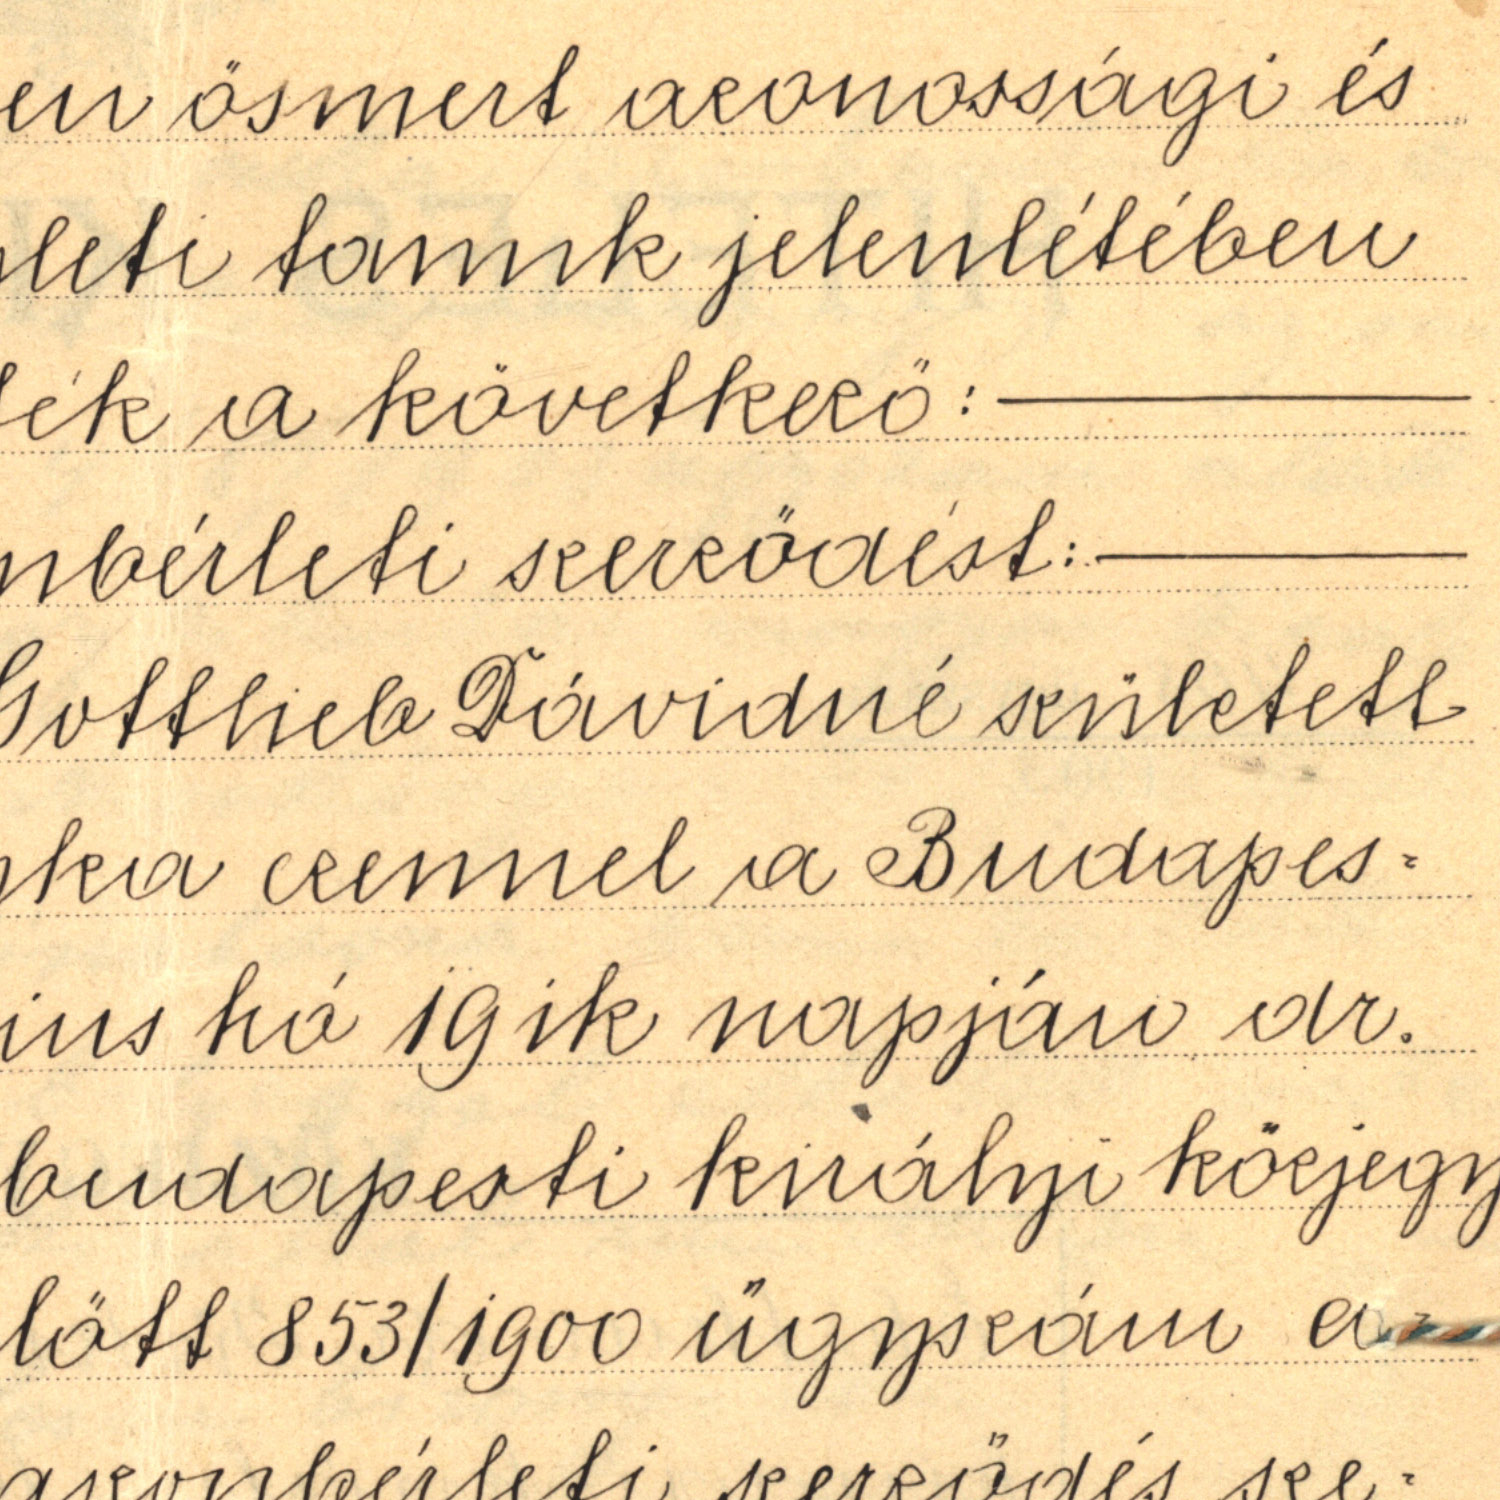 en ösmert azonossági és
leti tanuk jelenlétében
ték a következő:
nbérleti szerződést:
Gottlieb Dávidné született
nka ezennel a Budapes-
ius hó 19ik napján dr.
budapesti királyi közjegy
lőtt 853/1900 ügyszám a
aszonbérleti szerződés sze-